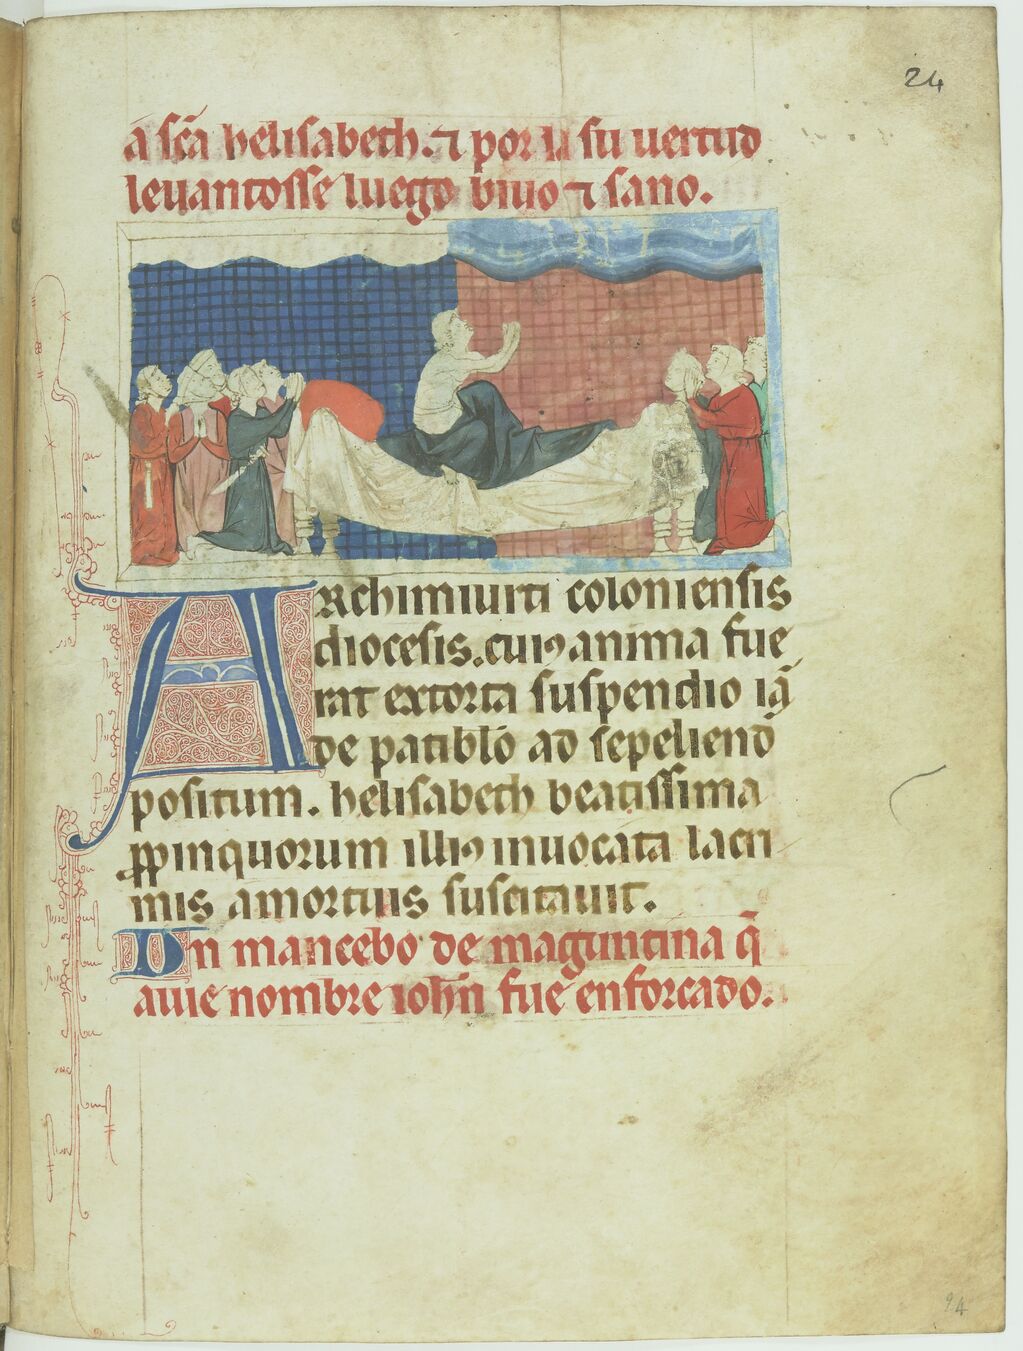 24
a sc̃a helisabeth. ⁊ por la su uertud
leuantosse luego biuo ⁊ sano.
Archimiurti coloniensis
diocesis. cuiꝯ anima fue
rat extorta suspendio iã
de patiblõ ad sepeliend̃
positum. helisabeth beatissima
ꝓpinquorum illiꝯ inuocata lacri
mis amortuis suscitauit.
Un mancebo de maguntina q̃
auie nombre ioh̃n fue enforcado.
24